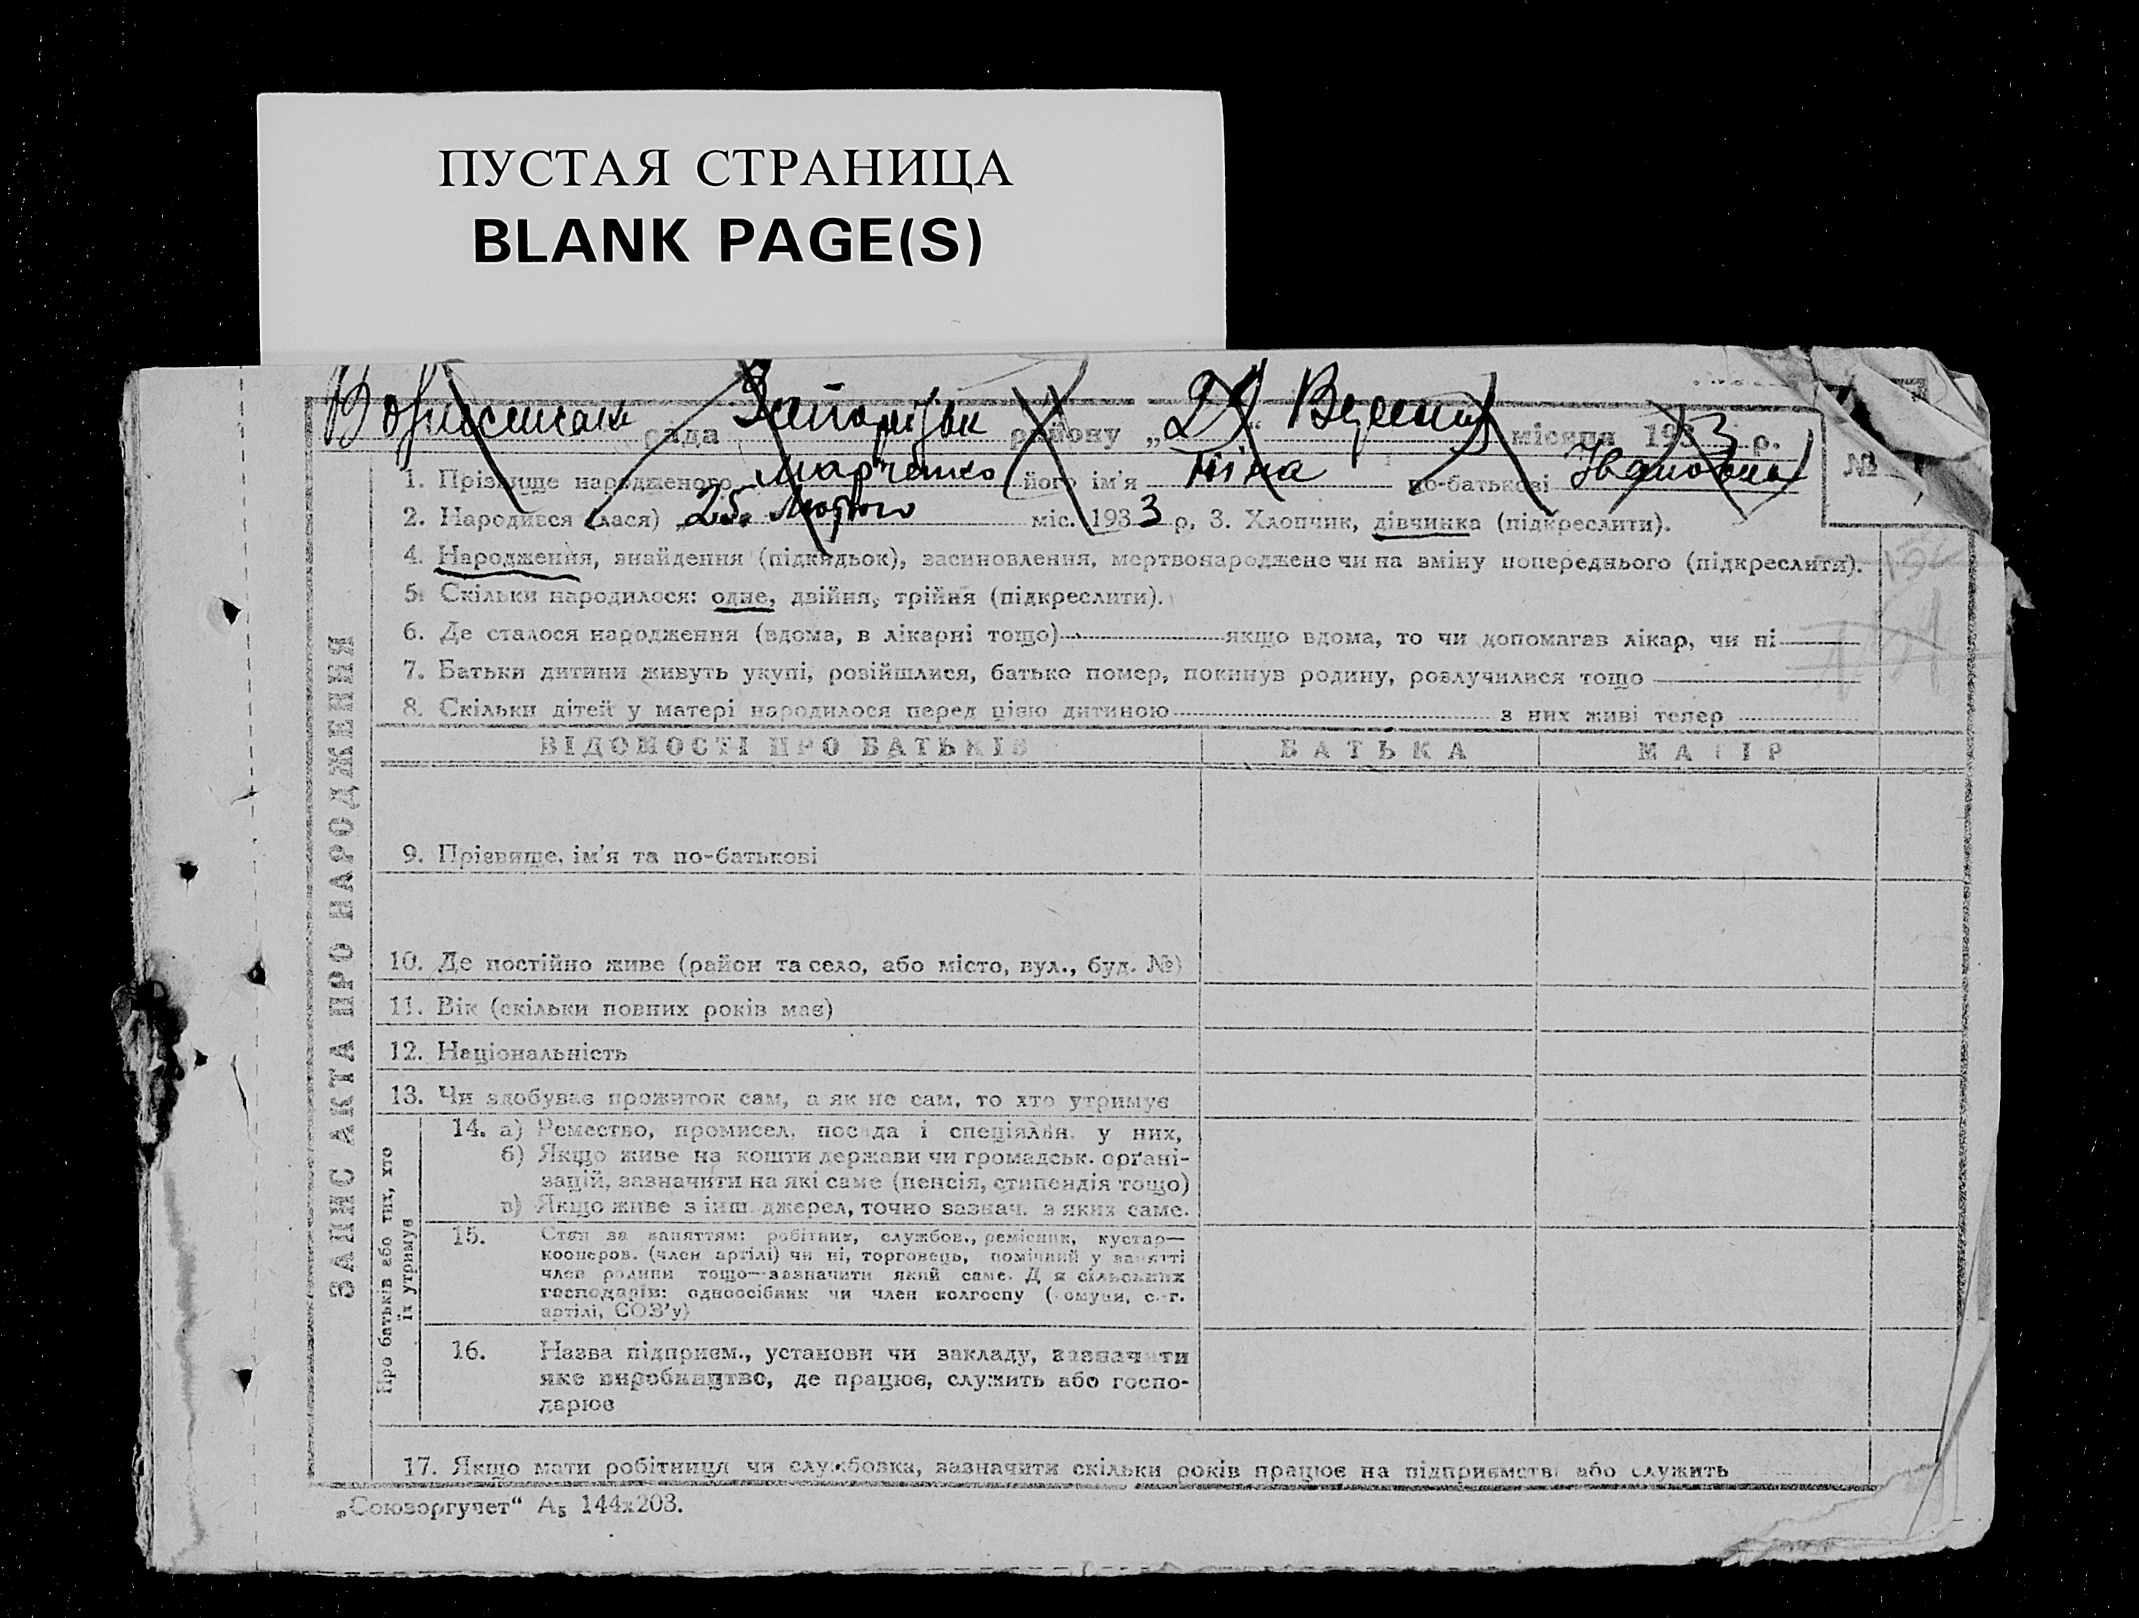 ПУСТАЯ СТРАНИЦА
BLANK PAGE(S)
рада району „29“ місяця 1933 р.
№
1. Прізвище народженого Марченко його ім'я Ніна по-батькові Івановна
2. Народився (лася) „25„ Лютого міс. 1933 р. 3. Хлопчик, дівчинка (підкреслити).
4. Народження, знайдення (підкидьок), засиновлення, мертвонароджене чи на зміну попереднього (підкреслити).
5. Скільки народилося: одне, двійня, трійня (підкреслити).
6. Де сталося народження (вдома, в лікарні тощо) якщо вдома, то чи допомагав лікар, чи ні
7. Батьки дитини живуть укупі, розійшлися, батько помер, покинув родину, розлучилися тощо
8. Скільки дітей у матері народилося перед цією дитиною з них живі тепер
ВІДОМОСТІ ПРО БАТЬКІВ БАТЬКА МАТІР
ЗАПИС АКТА ПРО НАРОДЖЕННЯ
9. Прізвище, ім'я та по-батькові
10. Де постійно живе (район та село, або місто, вул., буд. №)
11. Вік (скільки повних років має)
12. Національність
13. Чи здобуває прожиток сам, а як не сам, то хто утримує
Про батьків або тих, хто
їх утримує
14. а) Ремество, промисел, посада і спеціяльн. у них,
б) Якщо живе на кошти держави чи громадськ. орґані-
зацій, зазначити на які саме (пенсія, стипендія тощо)
в) Якщо живе з інш. джерел, точно зазнач. з яких саме.
15. Стан за заняттям: робітник, службов., ремісник, кустар—
кооперов. (член артілі) чи ні, торговець, помічний у занятті
член родини тощо—зазначити який саме. Для сільських
господарів: одноосібник чи член колгоспу (комуни, с.-г.
артілі, СОЗ'у)
16. Назва підприєм., установи чи закладу, зазначити
яке виробництво, де працює, служить або госпо-
дарює
17. Якщо мати робітниця чи службовка, зазначити скільки років працює на підприємстві або служить
„Союзоргучет“ А₅ 144х203.